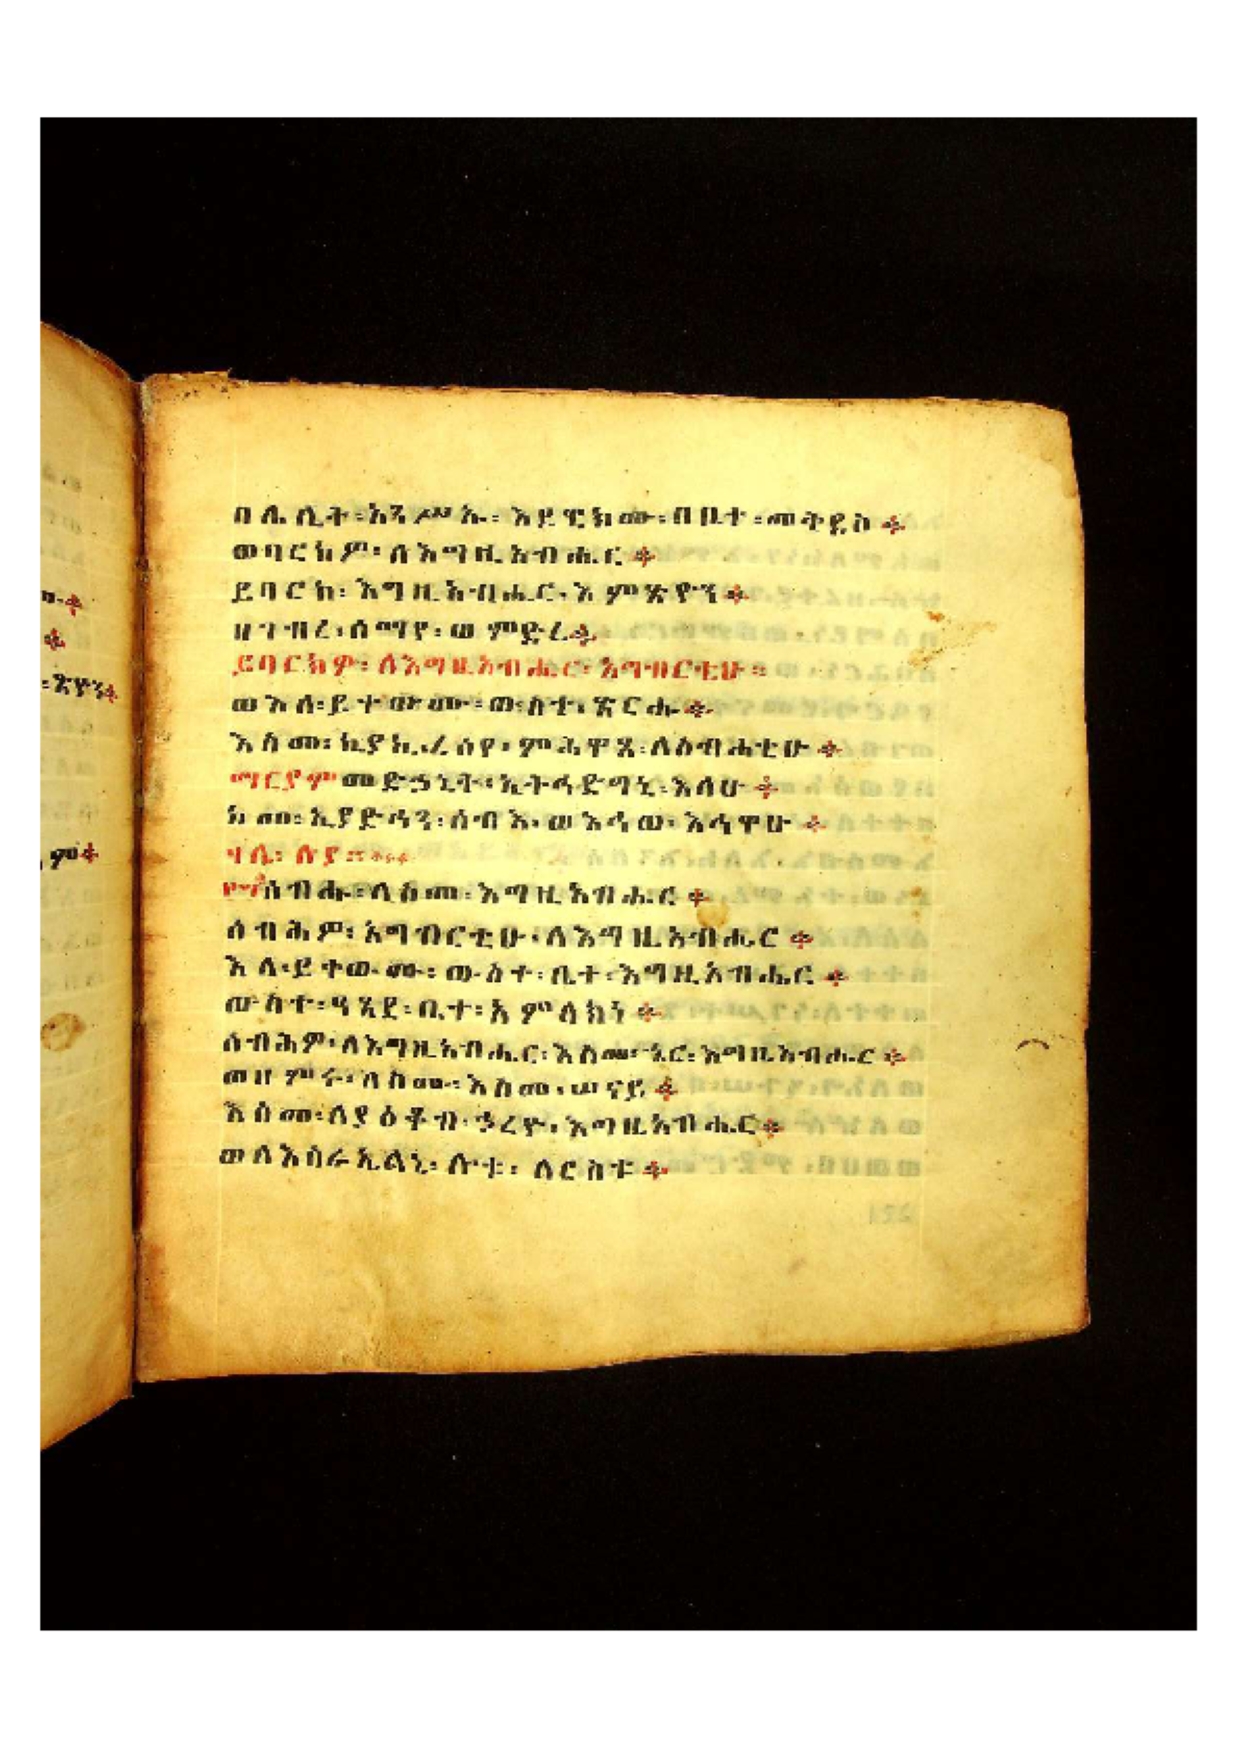 በሌሊት፡አንሥኡ፡እደዊክሙ፡በቤተ፡መቅደስ።
ወባርክዎ፡ለእግዚአብሔር።
ይባርከ፡እግዚአብሔር፡እምጽዮን።
ዘገብረ፡ሰማየ፡ወምድረ።
ይባርክዎ፡ለእግዚአብሔር፡አግብርቲሁ።
ወእለ፡ይቀውሙ፡ውስተ፡ጽርሑ።
እስመ፡ኪያኪ፡ረሰየ፡ምሕዋጸ፡ለስብሐቲሁ።
ማርያም፡መድኃኒት፡ኢትኅድግኒ፡እላሁ።
ከመ፡ኢያድኅን፡ሰብእ፡ወእኅወ፡እኅዋሁ።
ሃሌ፡ሉያ።
ሰብሑ፡ለስመ፡እግዚአብሔር።
ሰብሕዎ፡አግብርቲሁ፡ለእግዚአብሔር።
እለ፡ይቀውሙ፡ውስተ፡ቤተ፡እግዚአብሔር።
ውስተ፡ዓጸደ፡ቤተ፡አምላክነ።
ሰብሕዎ፡ለእግዚአብሔር፡እስመ፡ኄር፡እግዚአብሔር።
ወዘምሩ፡ለስሙ፡እስመ፡ሠናይ።
እስመ፡ለያዕቆብ፡ኃረዮ፡እግዚአብሔር።
ወለእስራኤልኒ፡ሎቱ፡ለርስቱ።